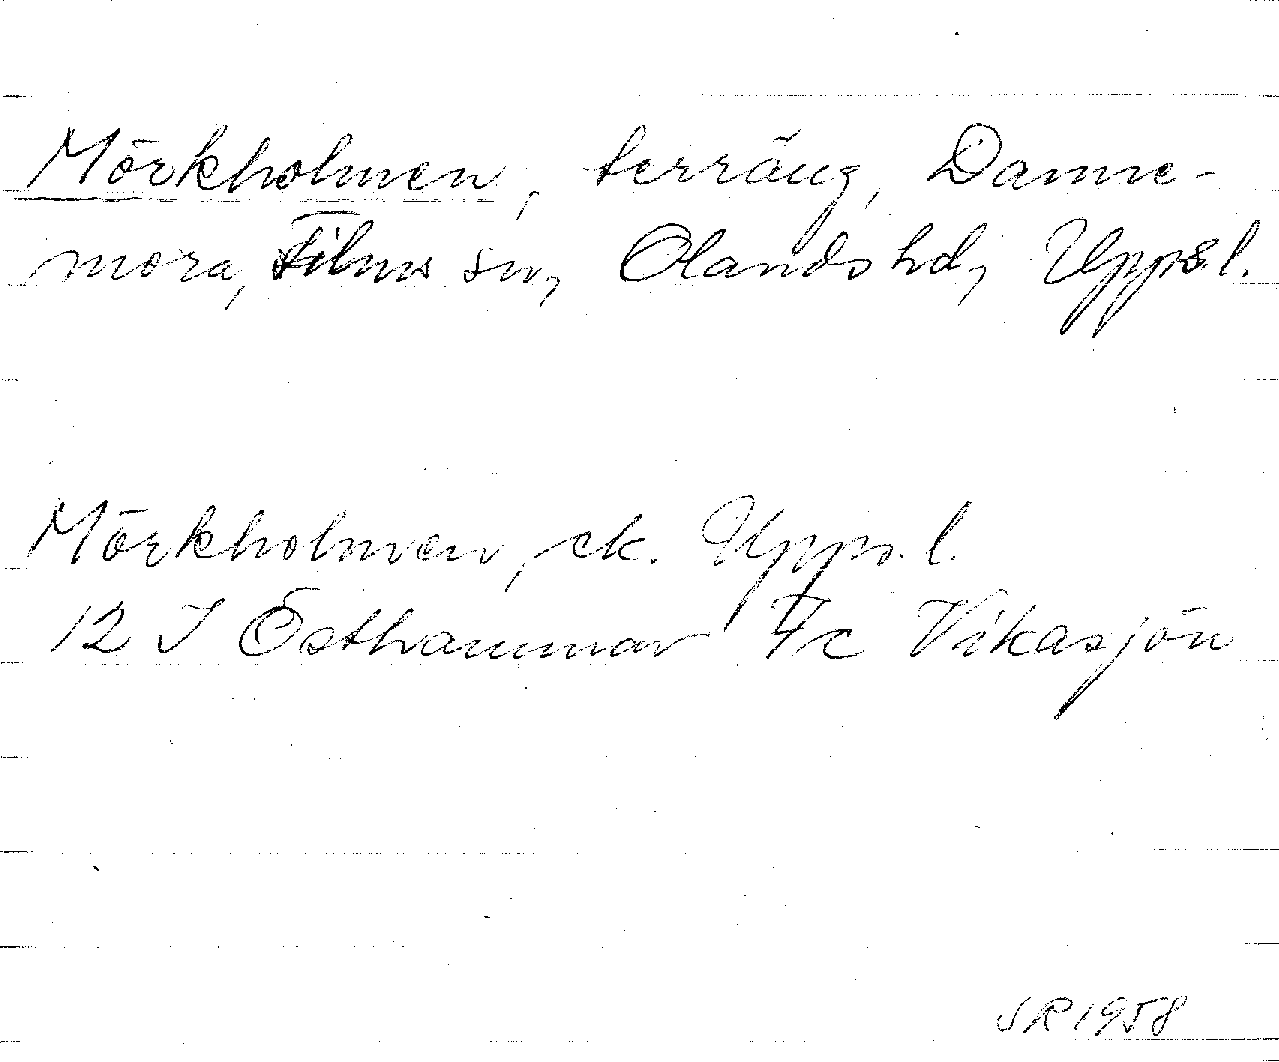 Mörkholmen, terräng, Danne-
mora, Films sn, Olands hd, Uppsl.
Mörkholmen, ek. Upps. l.
12 I Östhammar 7c Vikasjön
SR 1958